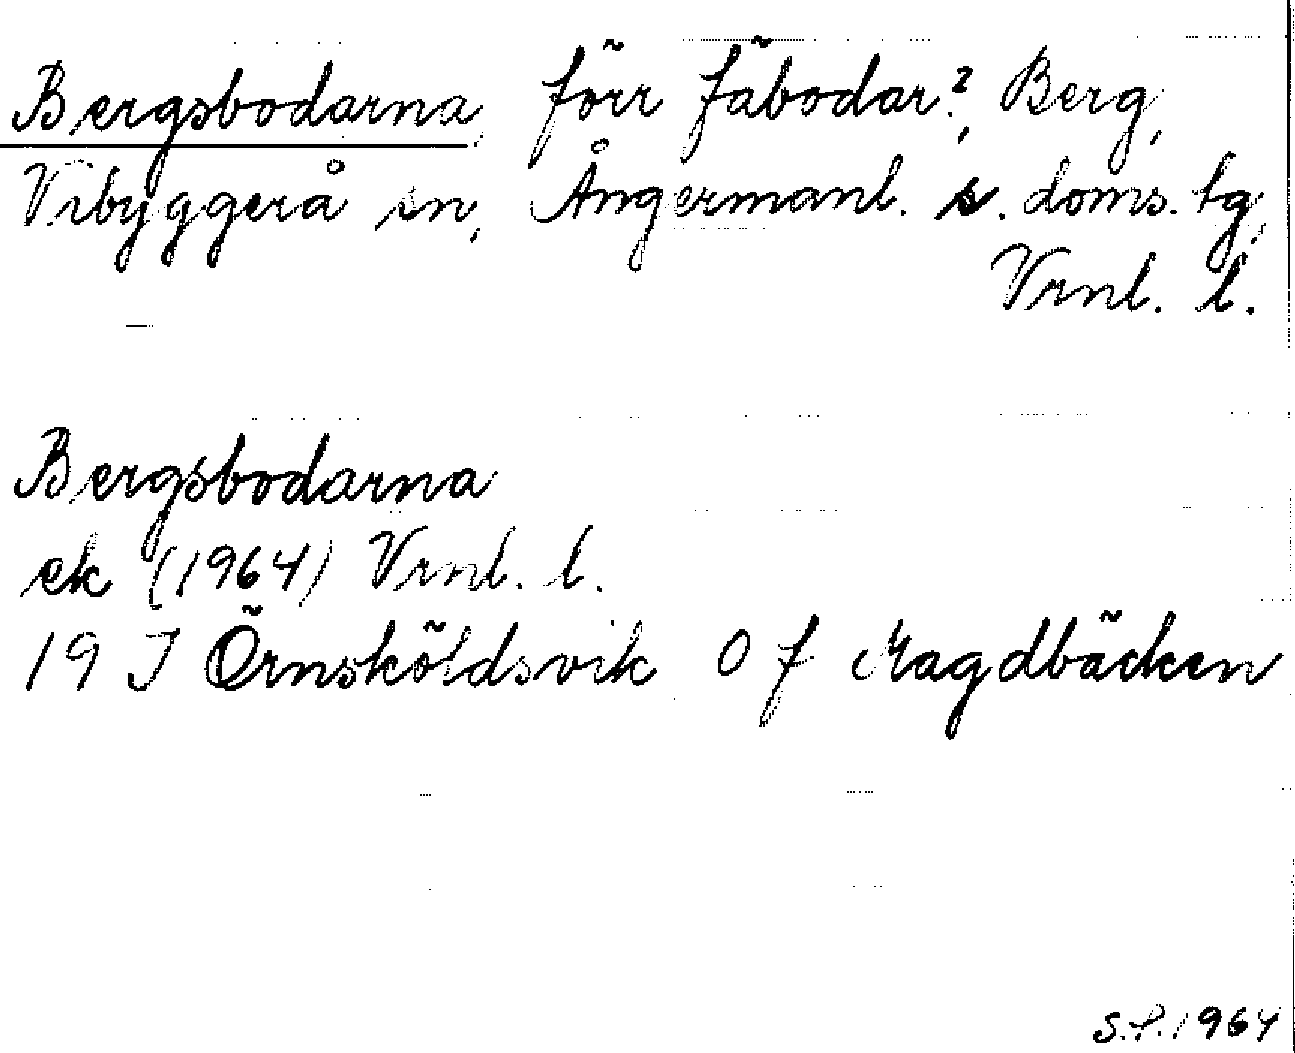 Bergsbodarna, förr fäbodar?, Berg,
Vibyggerå sn, Ångermanl. s. doms. tg,
Vrnl. l.
Bergsbodarna
ek (1964) Vrnl. l.
19 I Örnsköldsvik O f Magdbäcken
S.P. 1964